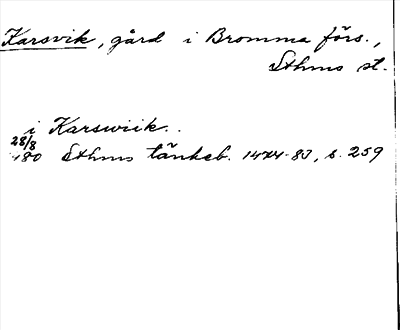 Karsvik, gård i Bromma förs.,
Sthms st.
i Karswiik.
28/8
480 Sthms tänkeb. 1474-83, s. 259